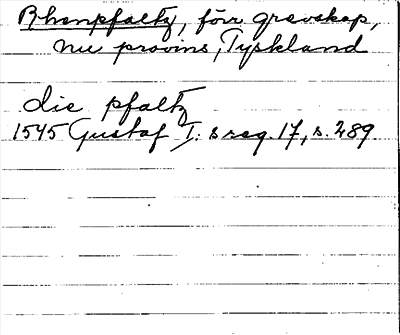 Rhenpfaltz, förr grevskap,
nu provins, Tyskland
die pfaltz
1545 Gustaf I:s reg. 17, s. 289